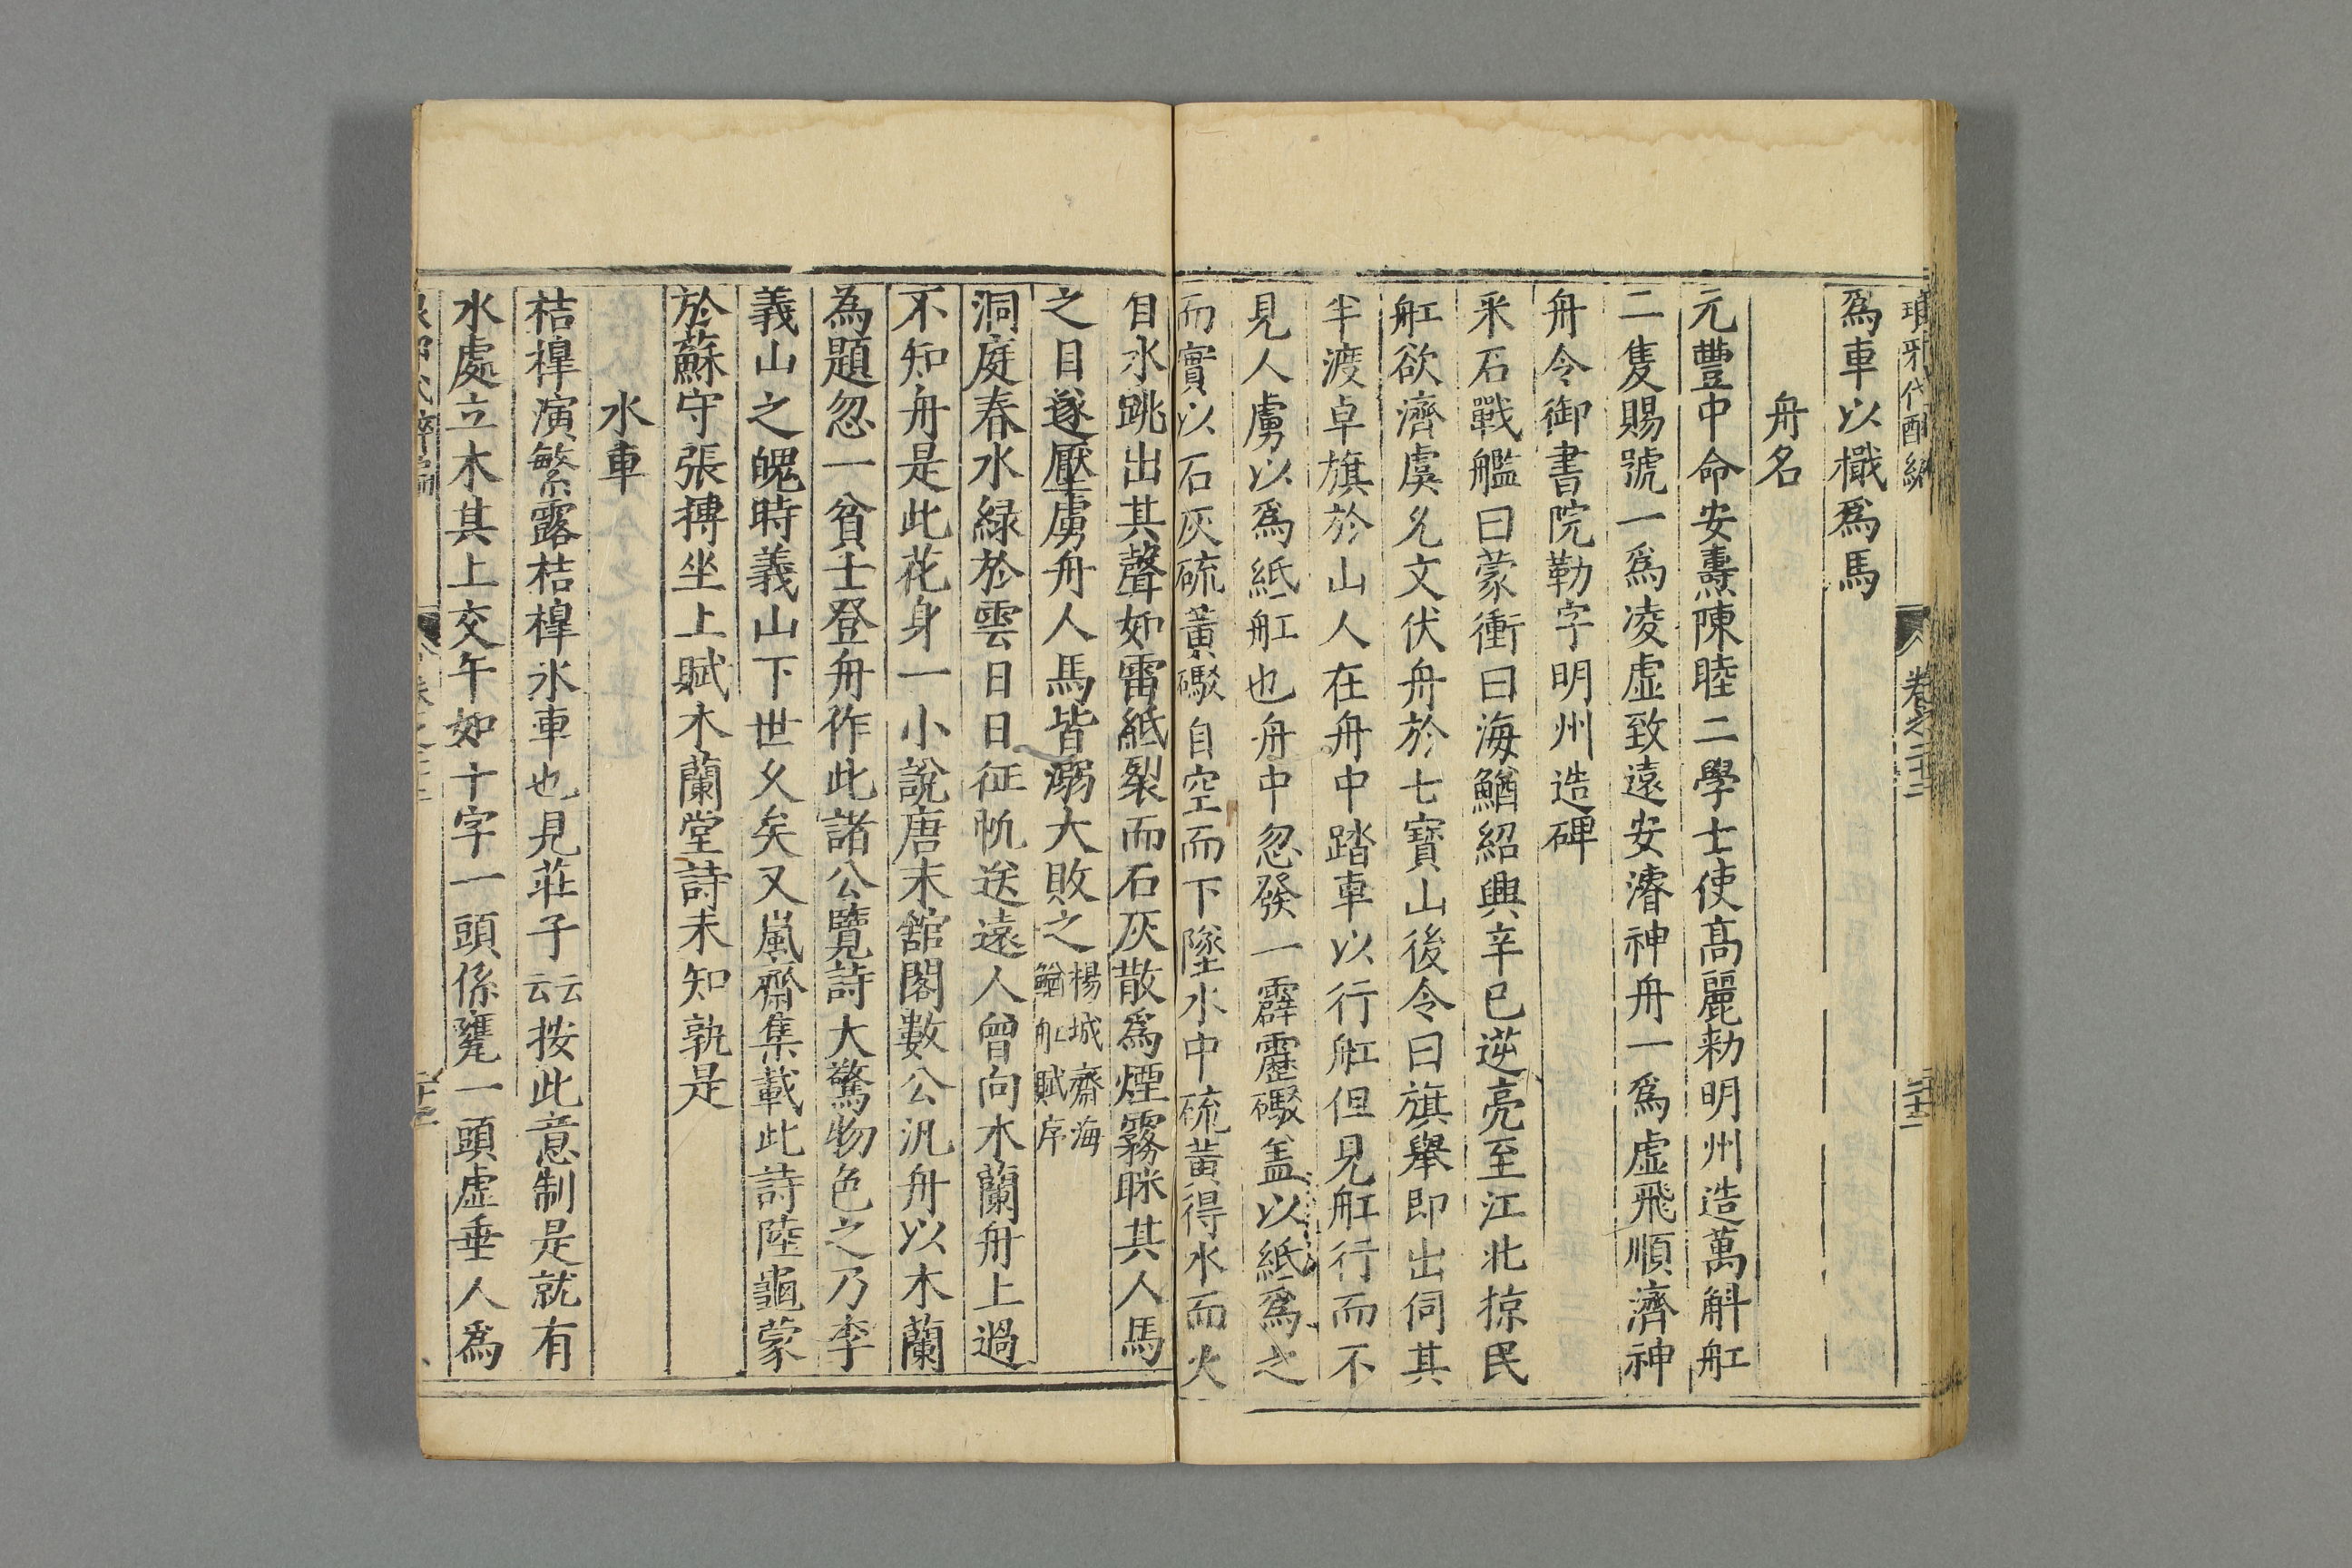 琅邪代醉編 卷之二十三
爲車以檝爲馬
舟名
元豐中命安燾陳睦二學士使高麗勑明州造萬斛舡
二隻賜號一爲凌虛致遠安濟神舟一爲虛飛順濟神
舟令御書院勒字明州造碑
采石戰艦曰蒙衝曰海鰌紹興辛巳逆亮至江北掠民
舡欲濟虞允文伏舟於七寶山後令曰旗舉即出伺其
半渡卓旗於山人在舟中踏車以行舡但見舡行而不
見人虜以爲紙舡也舟中忽發一霹靂礮盖以紙爲之
而實以石灰硫黃礮自空而下墜水中硫黃得水而火
自水跳出其聲如雷紙裂而石灰散爲煙霧眯其人馬
之目遂壓虜舟人馬皆溺大敗之楊城齋海鰌舡賦序
洞庭春水緑於雲日日征帆送遠人曾向木蘭舟上過
不知舟是此花身一小說唐末舘閣數公汎舟以木蘭
為題忽一貧士登舟作此諸公覽詩大驚物色之乃李
義山之魄時義山下世乆矣又嵐齋集載此詩陸龜蒙
於蘇守張搏坐上賦木蘭堂詩未知孰是
水車
桔槹演繁露桔槹氷車也見荘子云云按此意制是就有
水處立木其上交午如十字一頭係甕一頭虛垂人爲